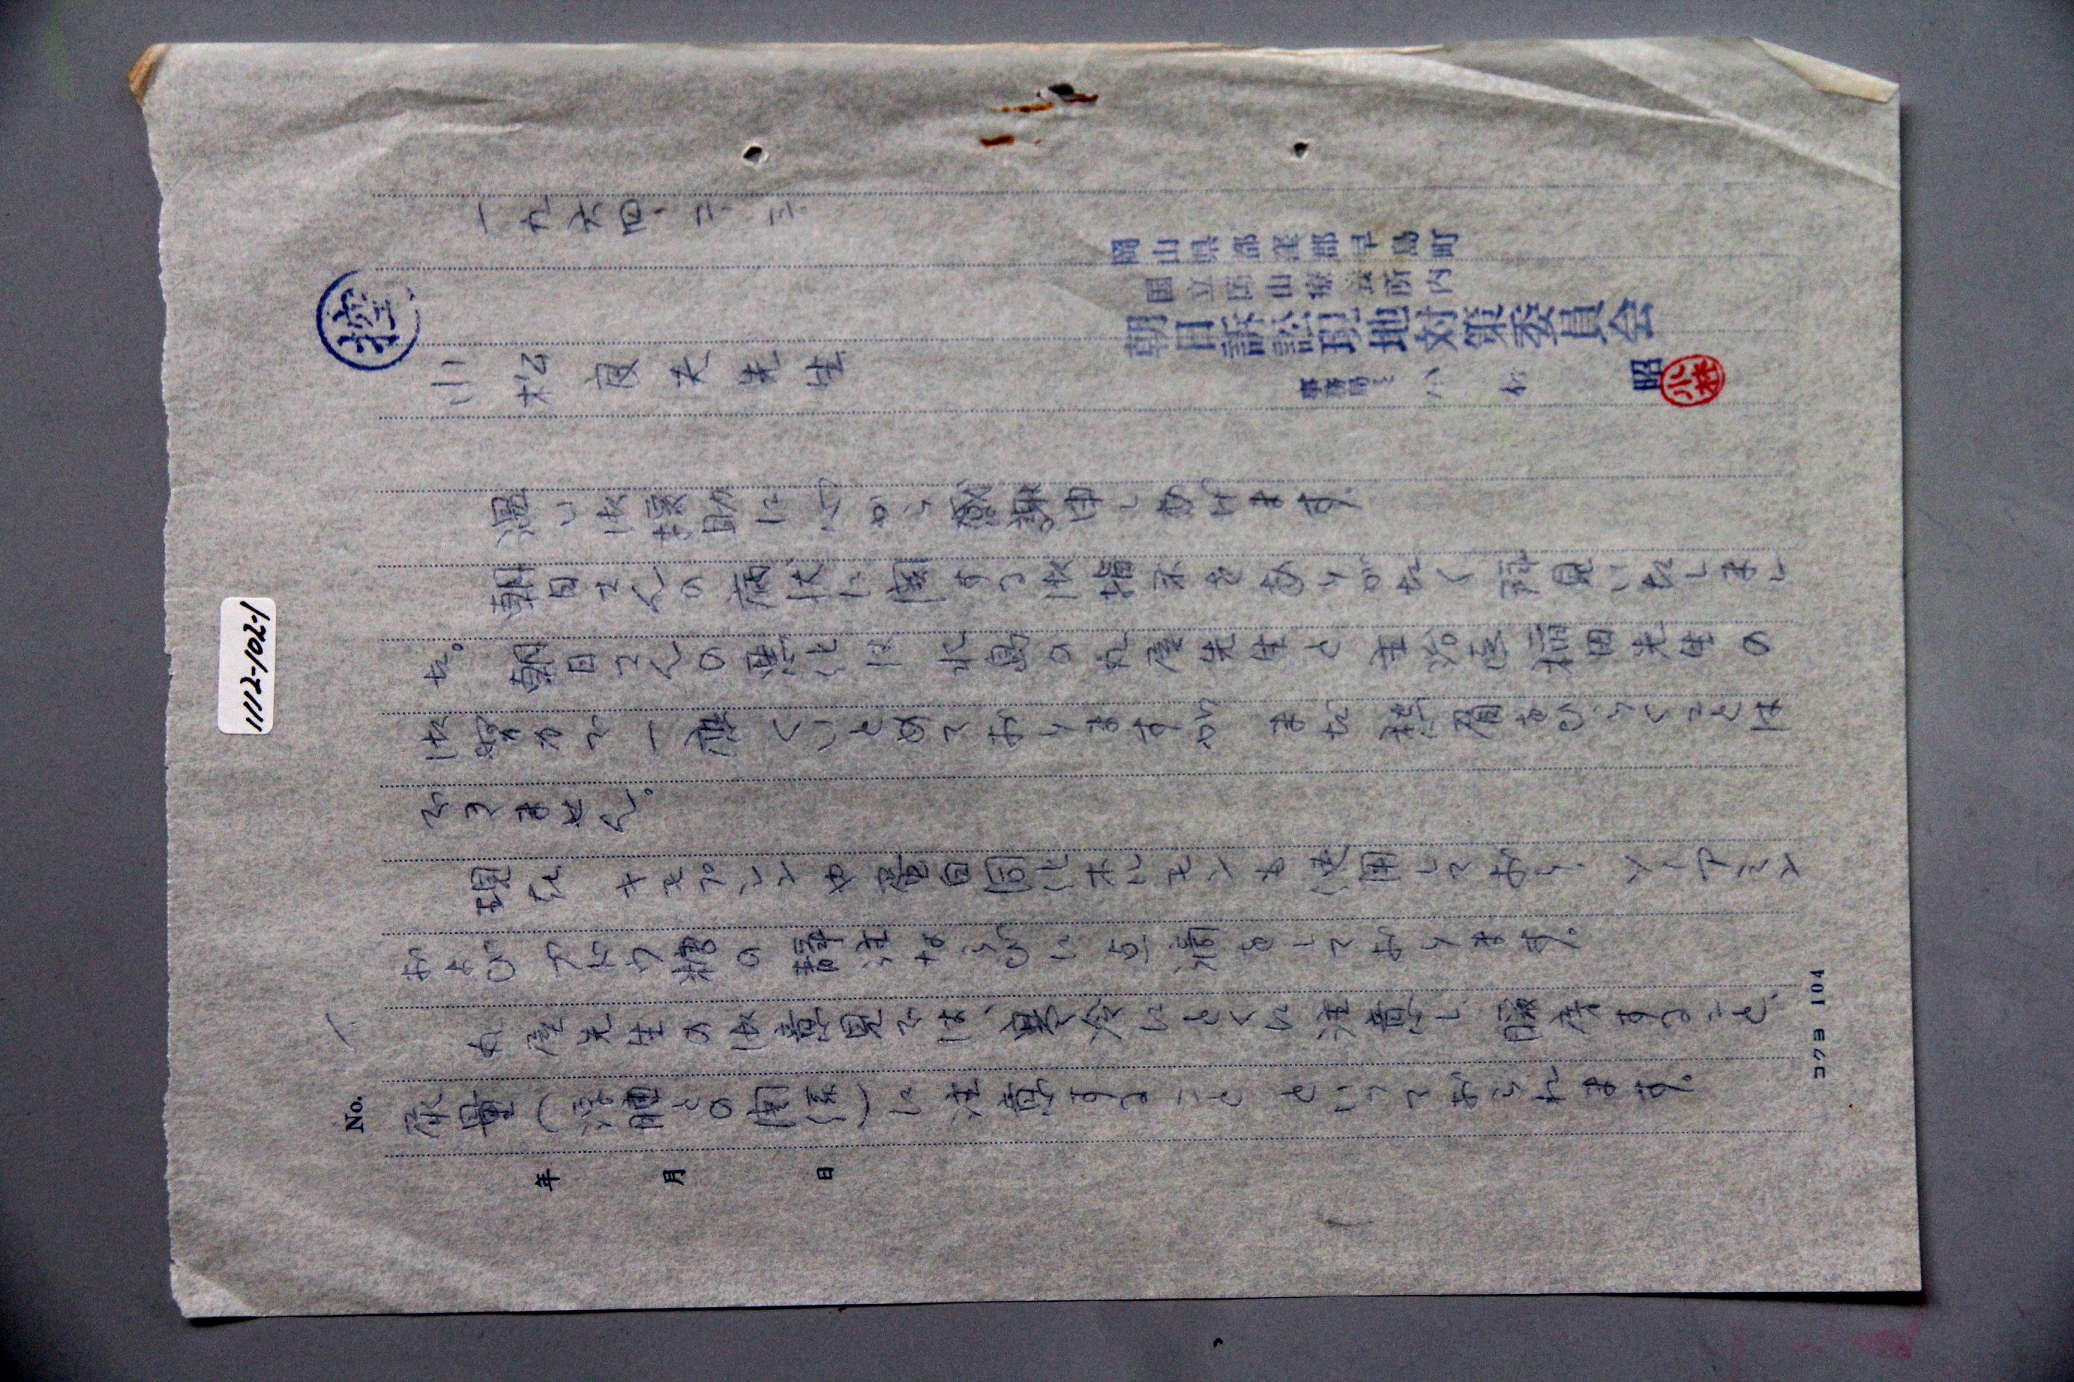 控
一九六四、三、三
岡山県都窪郡早島町
国立岡山療養所内
朝日訴訟現地対策委員会
小松良夫先生
事務局 小林 昭
小林
温い御援助に心から感謝申し上げます。
朝日さんの病状に関する御指示をありがたく拝見いたしまし
た。朝日さんの悪化は水島の丸屋先生と主治医稲田先生の
御努力で一応くいとめておりますが、まだ楽観をゆるすことは
できません。
現在 や蛋白同化ホルモンも使用しており、ソーアミン
およびブドウ糖の静注ならびに点滴をしております。
丸屋先生の御意見では、寒冷にとくに注意し、暖房すること、
尿量(浮腫との関係)に注意すること といっておられます。
No. 1
年 月 日
コクヨ 104
1112-102-1